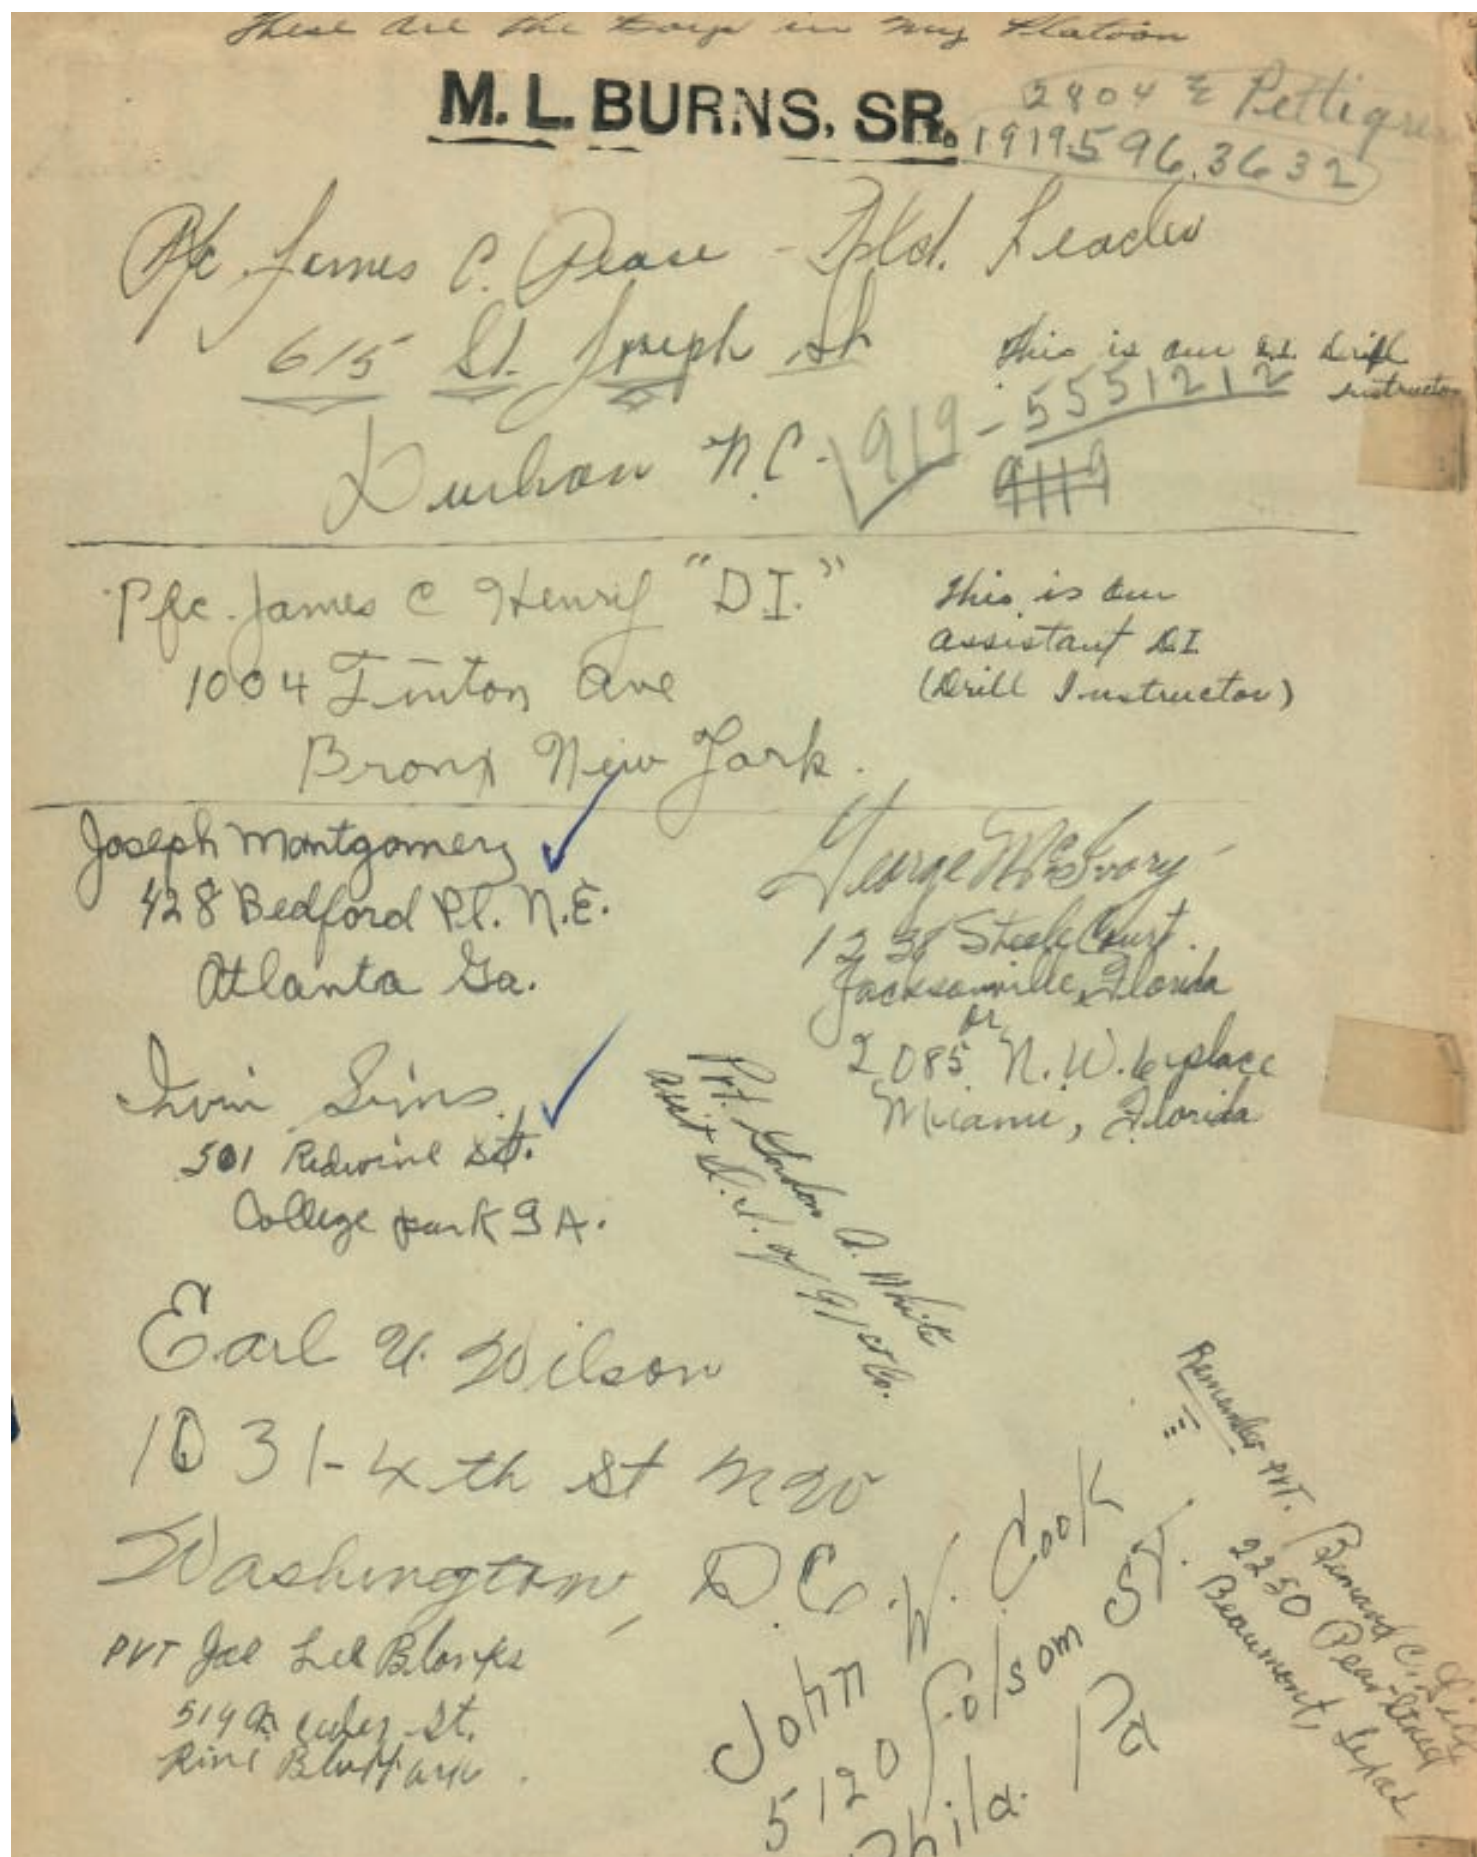 These are the boys in my Platoon
M. L. BURNS, SR.
2804 E Pettigrew
1919.596.3632
Pfc. James C. Pease - Fld. Leader
615 St. Joseph St
This is our Drill
Instructor
Durham N.C. 919-5551212
Pfc. James C Henry "D I."
1004 Tinton Ave
Bronx New York.
This is our
assistant DI
(Drill Instructor)
Joseph Montgomery
428 Bedford Pl. N.E.
Atlanta Ga.
George McIvory
1238 Steele Court.
Jacksonville, Florida
or
2085 N.W. place
Miami, Florida
Irvin Sims.
501 Redwine St.
College park GA.
Pvt. Gordon A. White
asst D.I. of 91st Co.
Earl U. Wilson
1031-4th St NW
Washington, D.C.
PVT Joe Lee Blanks
519 St.
Pine Bluff Ark.
John W. Cook
5120 Folsom ST.
Phila. Pa
Remember PVT. Bernard C.
2250 Pear
Beaumont, Texas